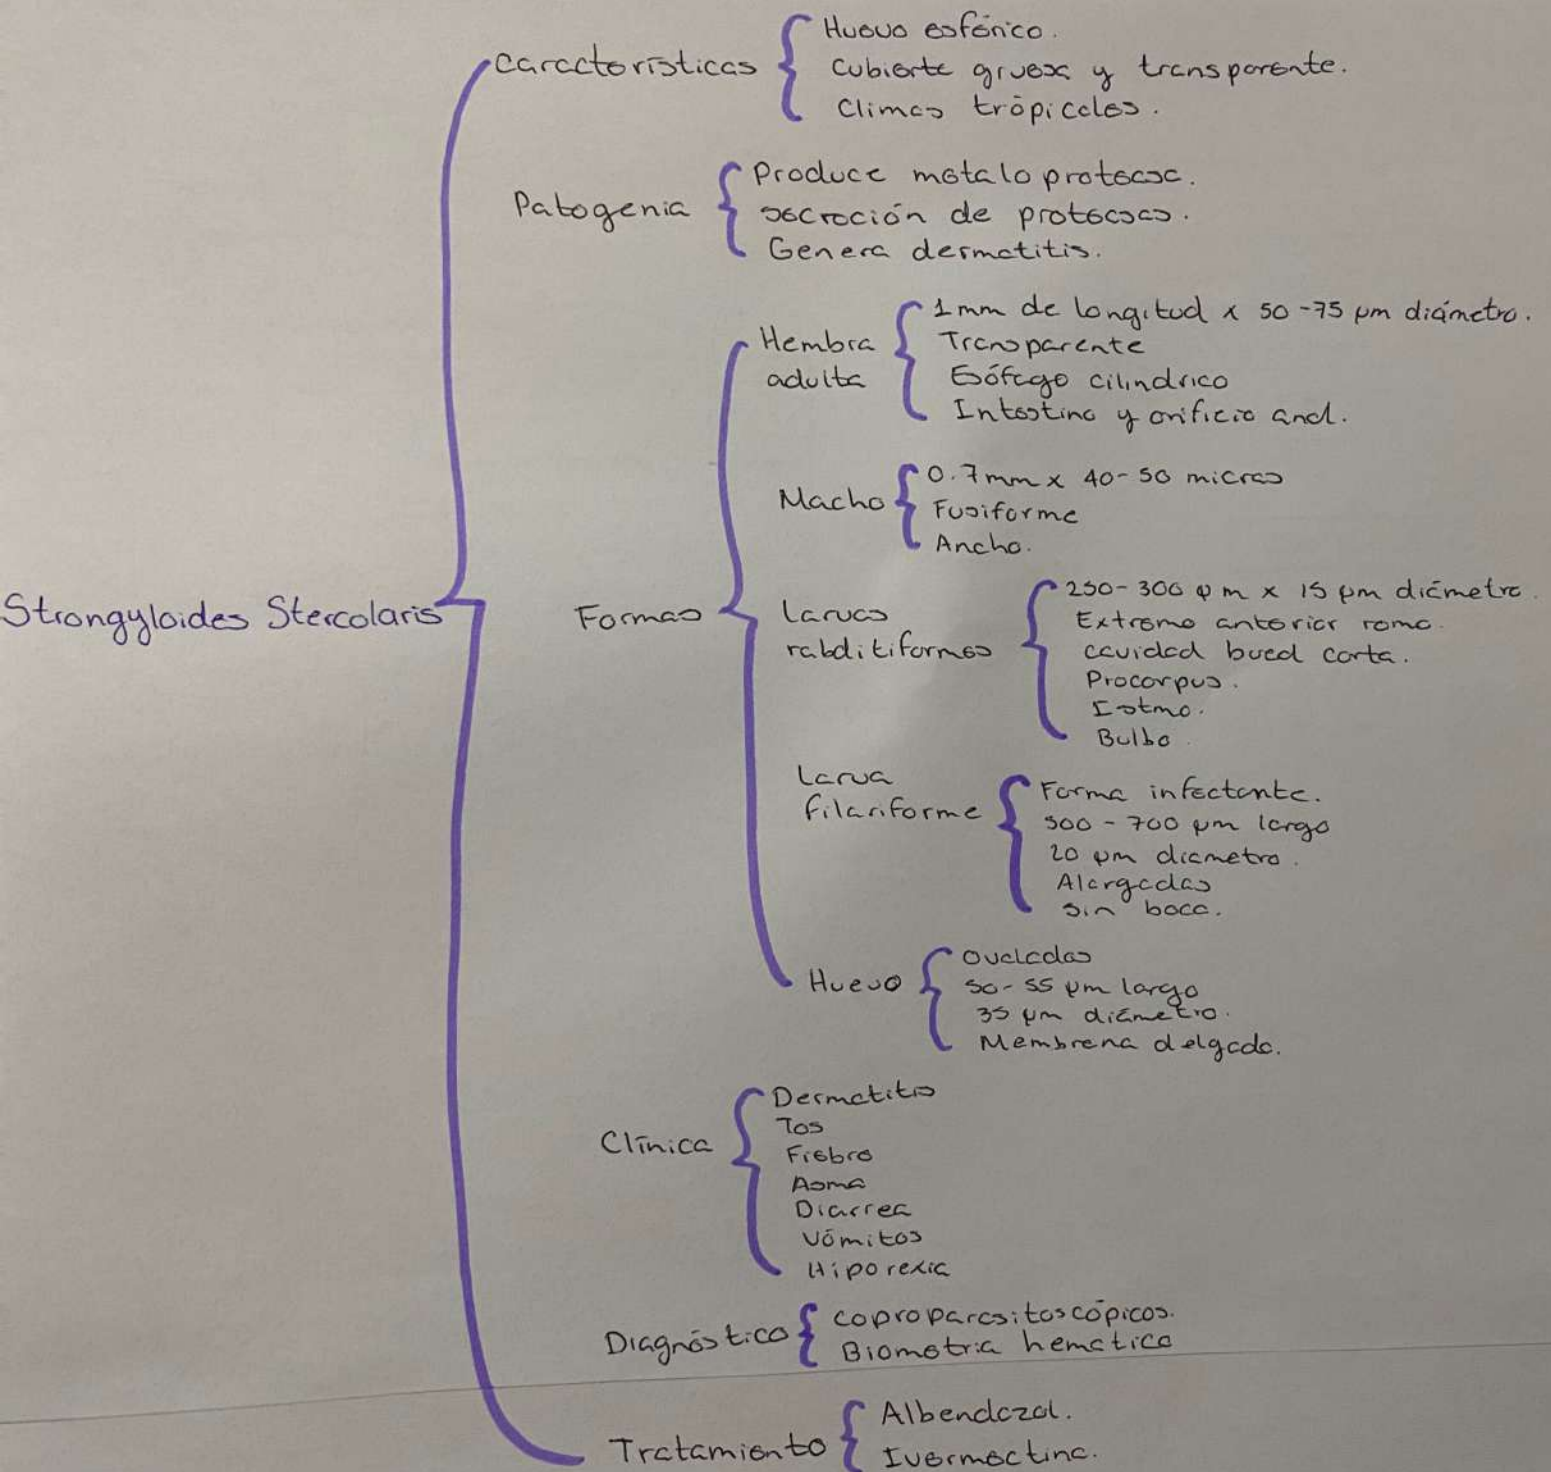 Strongyloides Stercolaris
Características
Huevo esférico.
Cubierta gruesa y transparente.
Climas trópicales.
Patogenia
Produce metalo proteasa.
secreción de proteasas.
Genera dermatitis.
Formas
Hembra
adulta
1mm de longitud x 50-75 µm diámetro.
Transparente
Esófago cilindrico
Intestino y orificio anal.
Macho
0.7mm x 40-50 micras
Fusiforme
Ancho.
Larvas
rabditiformes
250-300 µm x 15 µm diámetro.
Extremo anterior romo.
cavidad bucal corta.
Procorpus.
Istmo.
Bulbo
Larva
filariforme
Forma infectante.
500-700 µm largo
20 µm diametro.
Alargadas
sin boca.
Huevo
Ovaladas
50-55 µm largo
35 µm diámetro.
Membrana delgada.
Clínica
Dermatitis
Tos
Fiebre
Asma
Diarrea
Vómitos
Hiporexia
Diagnóstico
coproparasitoscópicos.
Biometria hematica
Tratamiento
Albendazol.
Ivermectina.